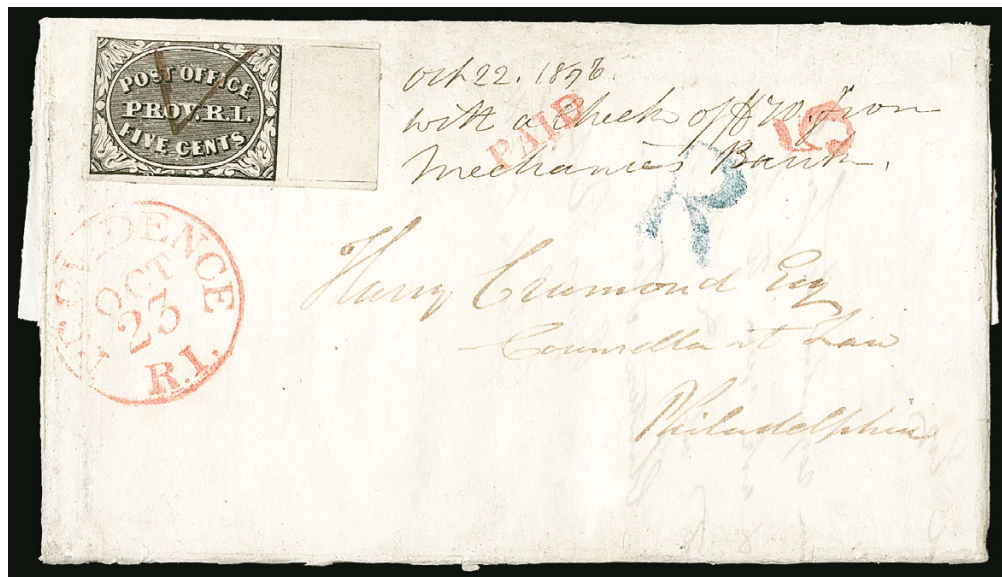 POST OFFICE
PROV. R.I.
FIVE CENTS
Oct 22. 1846
with a check of H W from
Mechanics Bank.
PAID
5
R
PROVIDENCE
OCT
23
R.I.
Harry Cramond Esq
Counsellor at Law
Philadelphia